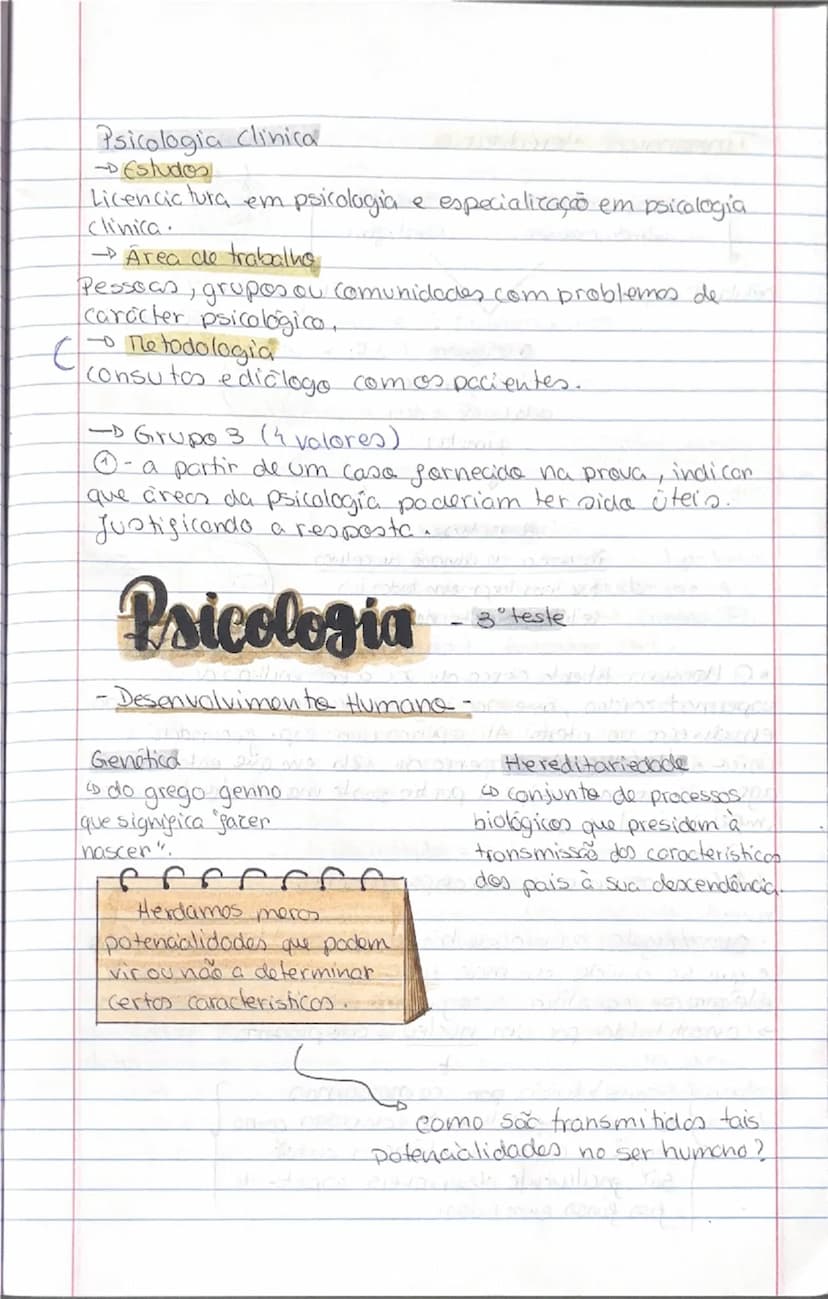 Psicologia Clinica
→ Estudos
Licenciatura em psicologia e especialização em psicologia
clinica.
→ Área de trabalho
Pessoas, grupos ou comunidades com problemas de
carácter psicológico.
→ Metodologia
consutas e diálogo com os pacientes.
→ Grupo 3 (4 valores)
① - a partir de um caso fornecido na prova, indicar
que áreas da psicologia poderiam ter sido úteis.
Justificando a resposta.
Psicologia - 3º teste
- Desenvolvimento Humano -
Genética
↳ do grego genno
que significa "fazer
nascer".
Hereditariedade
↳ conjunto de processos
biológicos que presidem à
transmissão das características
dos pais à sua descendência.
Herdamos meras
potencialidades que podem
vir ou não a determinar
certas características.
como são transmitidas tais
potencialidades no ser humano?